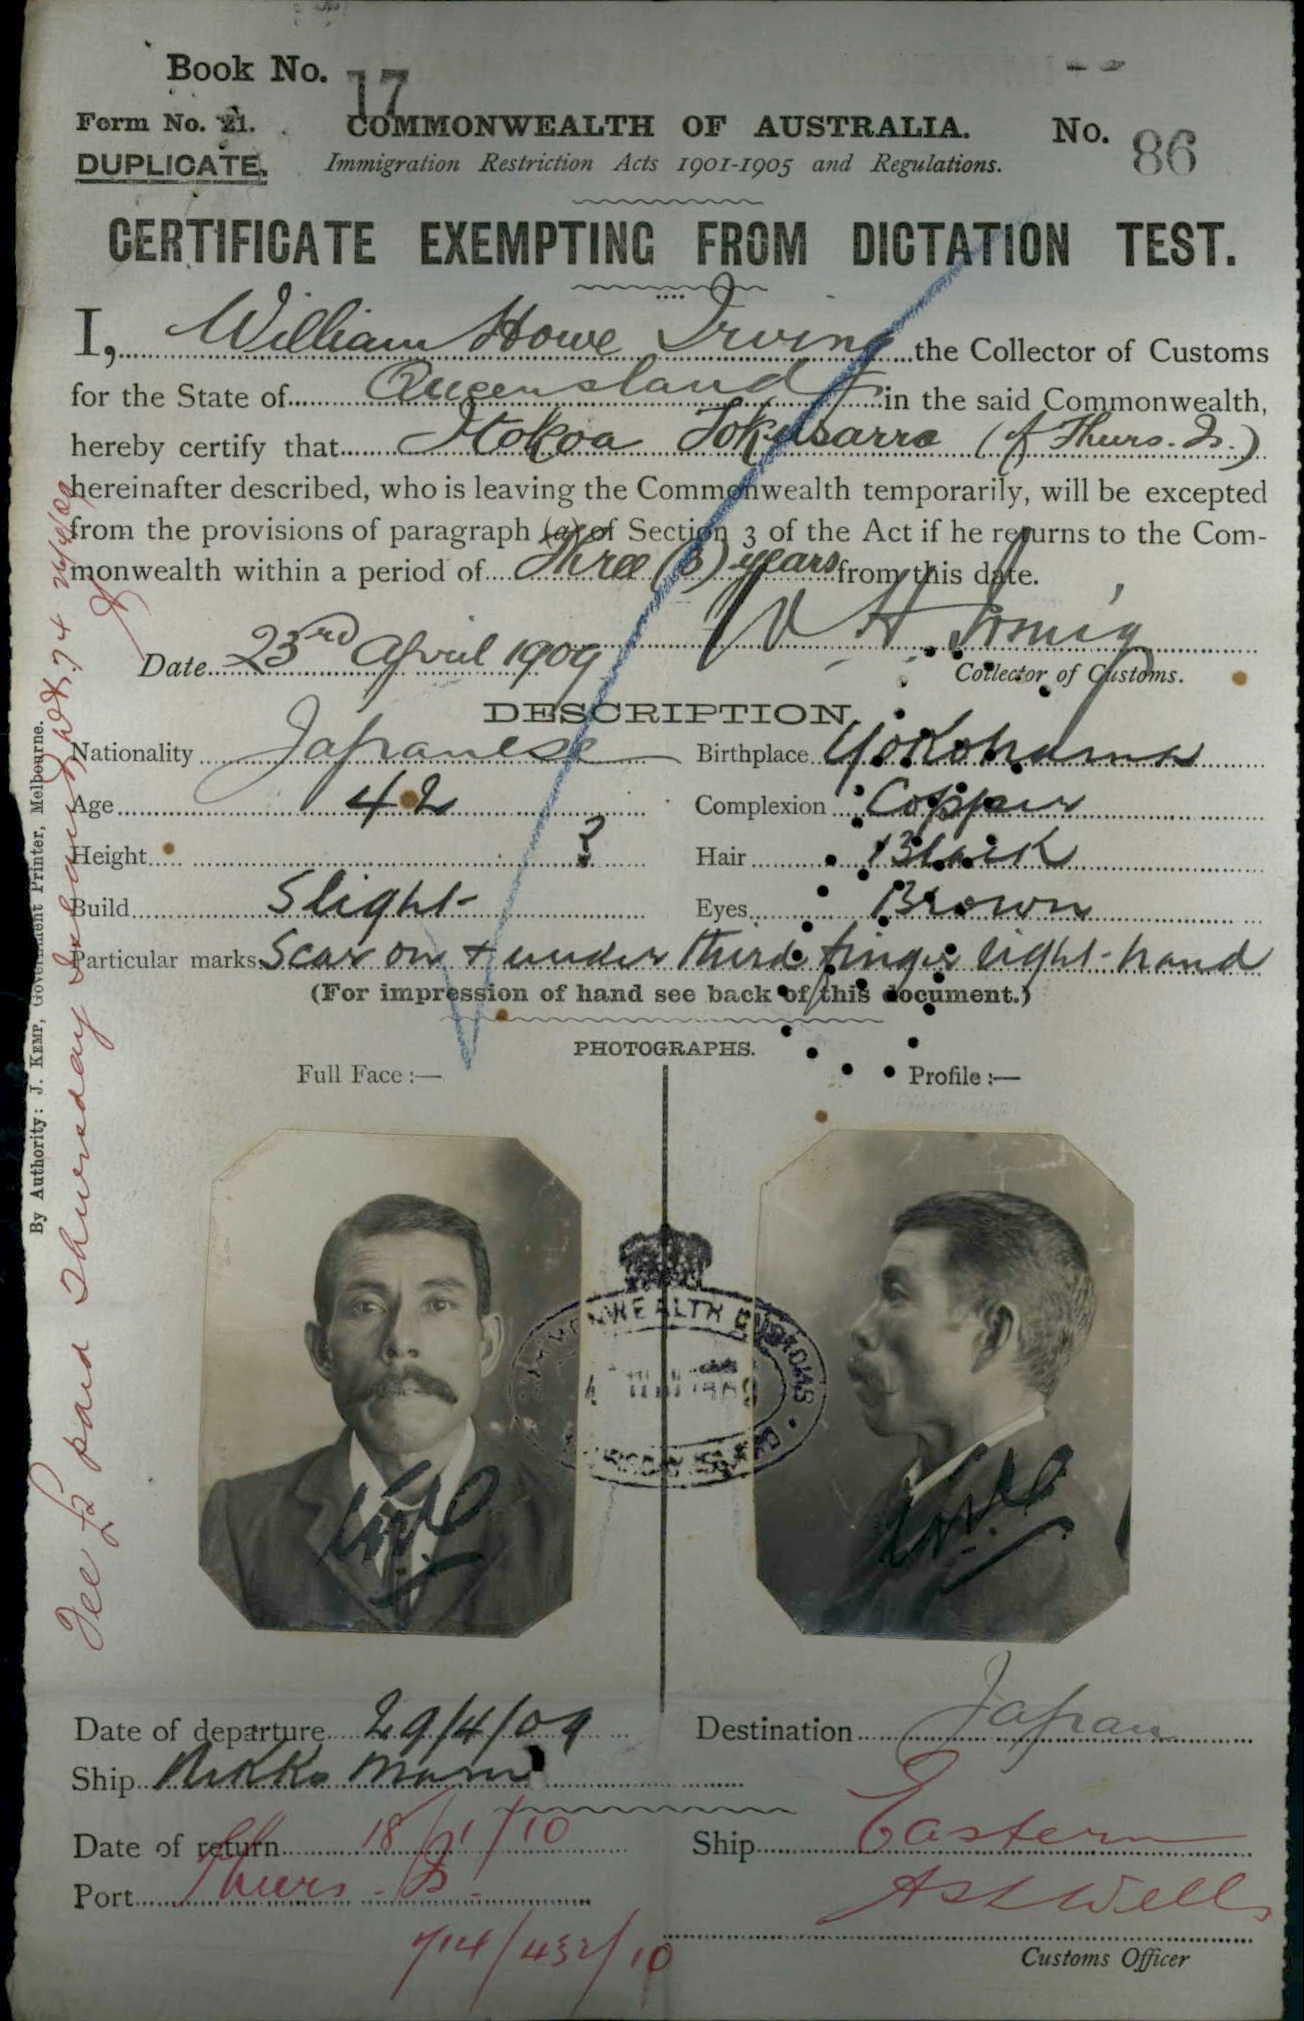 Book No. 17
Form No. 21. COMMONWEALTH OF AUSTRALIA. No. 86
DUPLICATE. Immigration Restriction Acts 1901-1905 and Regulations.
CERTIFICATE EXEMPTING FROM DICTATION TEST.
I, William Howe Irving the Collector of Customs
for the State of Queensland in the said Commonwealth,
hereby certify that Itokoa Tokusarra (of Thurs. Is.)
hereinafter described, who is leaving the Commonwealth temporarily, will be excepted
from the provisions of paragraph (a) of Section 3 of the Act if he returns to the Com-
monwealth within a period of Three (3) years from this date.
W H Irving
Date 23rd April 1909 Collector of Customs.
DESCRIPTION
Nationality Japanese Birthplace Yokohama
Age 42 Complexion Copper
Height ? Hair Black
Build Slight Eyes Brown
Particular marks Scar on + under third finger right-hand
(For impression of hand see back of this document.)
PHOTOGRAPHS.
Full Face :— Profile :—
COMMONWEALTH CUSTOMS
Date of departure 29/4/09 Destination Japan
Ship Nikko Maru
Date of return 18/1/10 Ship Eastern
Port Thurs. Is.
Customs Officer
714/432/10
By Authority: J. KEMP, Government Printer, Melbourne.
Fee £1 paid Thursday Island